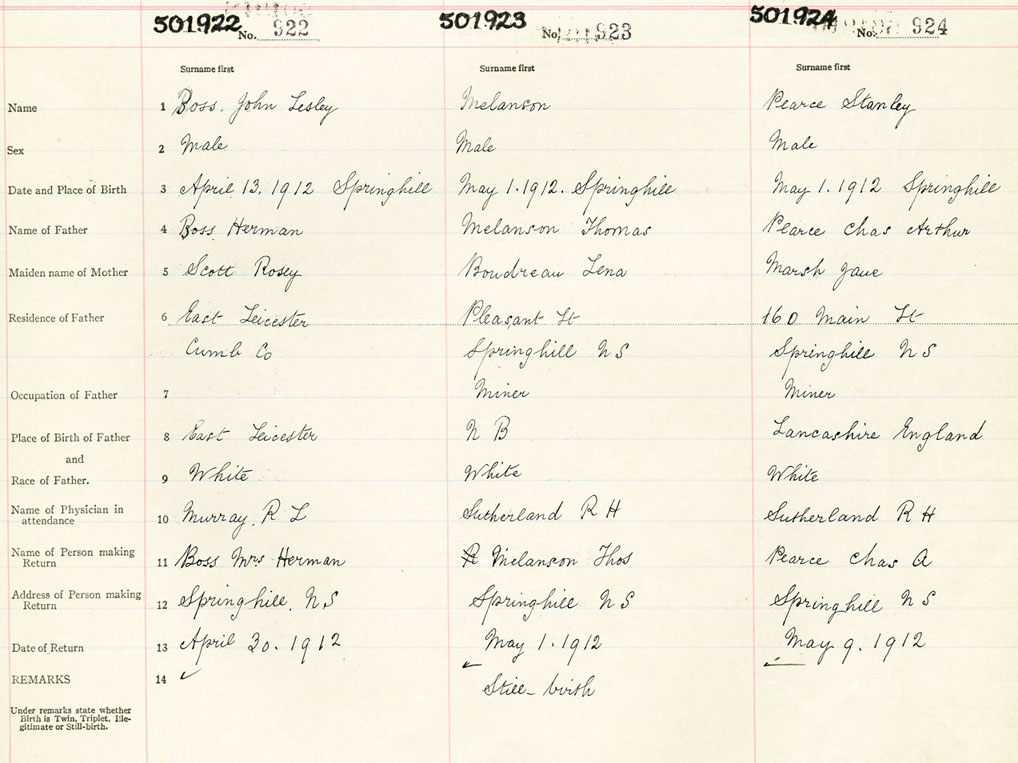 501922 No. 922 501923 No. 923 501924 No. 924
Surname first Surname first Surname first
Name 1 Boss. John Lesley Melanson Pearce Stanley
Sex 2 Male Male Male
Date and Place of Birth 3 April 13. 1912 Springhill May 1. 1912. Springhill May 1. 1912 Springhill
Name of Father 4 Boss Herman Melanson Thomas Pearce Chas Arthur
Maiden name of Mother 5 Scott Rosey Boudreau Lena Marsh Jane
Residence of Father 6 East Leicester Pleasant St 160 Main St
Cumb Co Springhill N S Springhill N S
Occupation of Father 7 Miner Miner
Place of Birth of Father 8 East Leicester N B Lancashire England
and
Race of Father. 9 White White White
Name of Physician in
attendance 10 Murray. R L Sutherland R H Sutherland R H
Name of Person making
Return 11 Boss Mrs Herman Melanson Thos Pearce Chas A
Address of Person making
Return 12 Springhill. N S Springhill N S Springhill N S
Date of Return 13 April 30. 1912 May 1. 1912 May 9. 1912
REMARKS 14 ✓ Still-birth
Under remarks state whether
Birth is Twin, Triplet, Ille-
gitimate or Still-birth.